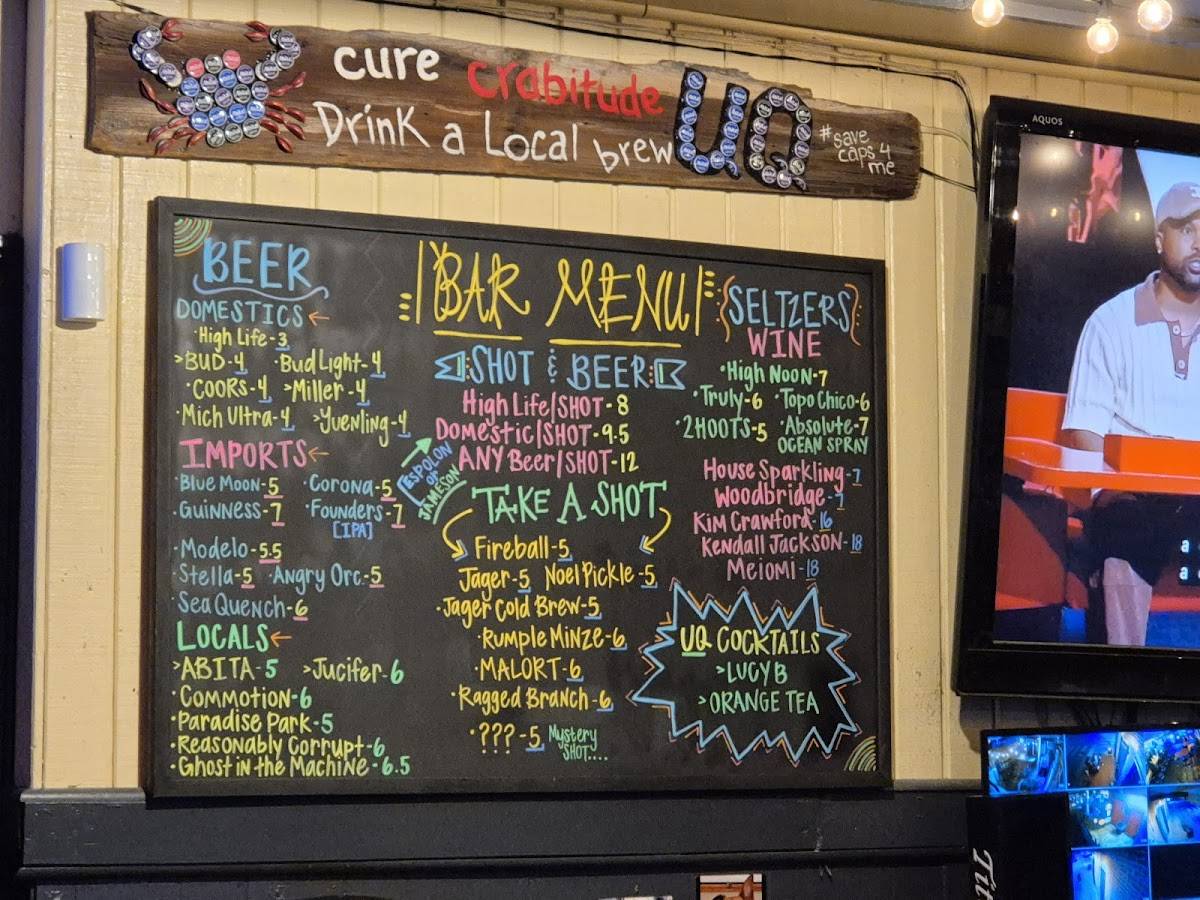 cure crabitude
Drink a Local brew
UQ
#save
caps 4
me
AQUOS
BEER
DOMESTICS
·High Life-3
>BUD-4 ·Bud Light-4
·COORS-4 >Miller-4
·Mich Ultra-4 >Yuenling-4
IMPORTS
·Blue Moon-5 ·Corona-5
·Guinness-7 ·Founders-7
[IPA]
·Modelo-5.5
·Stella-5 ·Angry Orc.-5
·Sea Quench-6
LOCALS
>ABITA-5 >Jucifer-6
·Commotion-6
·Paradise Park-5
·Reasonably Corrupt-6
·Ghost in the Machine-6.5
BAR MENU
SHOT & BEER
High Life/SHOT-8
Domestic/SHOT-9.5
ANY Beer/SHOT-12
[ESPOLON
or
JAMESON
TAKE A SHOT
Fireball-5
Jager-5 Noel Pickle-5
·Jager Cold Brew-5
·Rumple Minze-6
·MALORT-6
·Ragged Branch-6
·???-5 Mystery
SHOT....
SELTZERS
WINE
·High Noon-7
·Truly-6 ·Topo Chico-6
·2HOOTS-5 ·Absolute-7
OCEAN SPRAY
House Sparkling-7
Woodbridge-7
Kim Crawford-16
Kendall Jackson-18
Meiomi-18
UQ COCKTAILS
>LUCY B
>ORANGE TEA